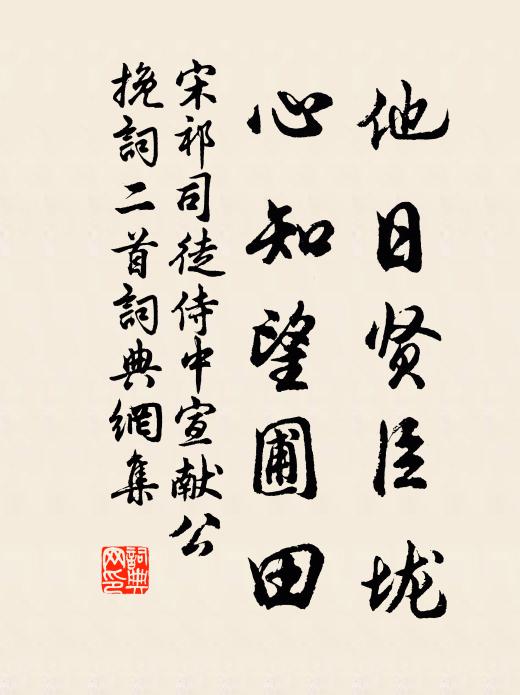 他日贤臣垅
心知望圃田
宋祁司徒侍中宣献公
挽詞二首詞典網集
詞典
网印